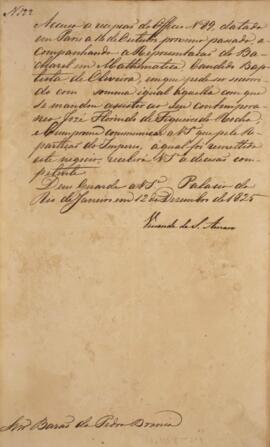 N. 22
Accuso a recepção do Officio N. 89, datado
em Paris a 14 de Outubro proximo passado, e
acompanhando a Representação do Ba-
charel em Mathematica Candido Bap-
tista de Oliveira, em que pede ser soccorri-
do com somma igual áquella com que
se mandou assistir ao seu contempora-
neo José Florindo de Figueiredo Rocha,
e cumpre-me communicar a VSª que pela Re-
partição do Imperio, a qual foi remettido
este negocio, receberá VSª a decisão com-
petente.
Deus Guarde a VSª Palacio do
Rio de Janeiro em 12 de Dezembro de 1825
Visconde de S. Amaro
Snr. Barão da Pedra Branca